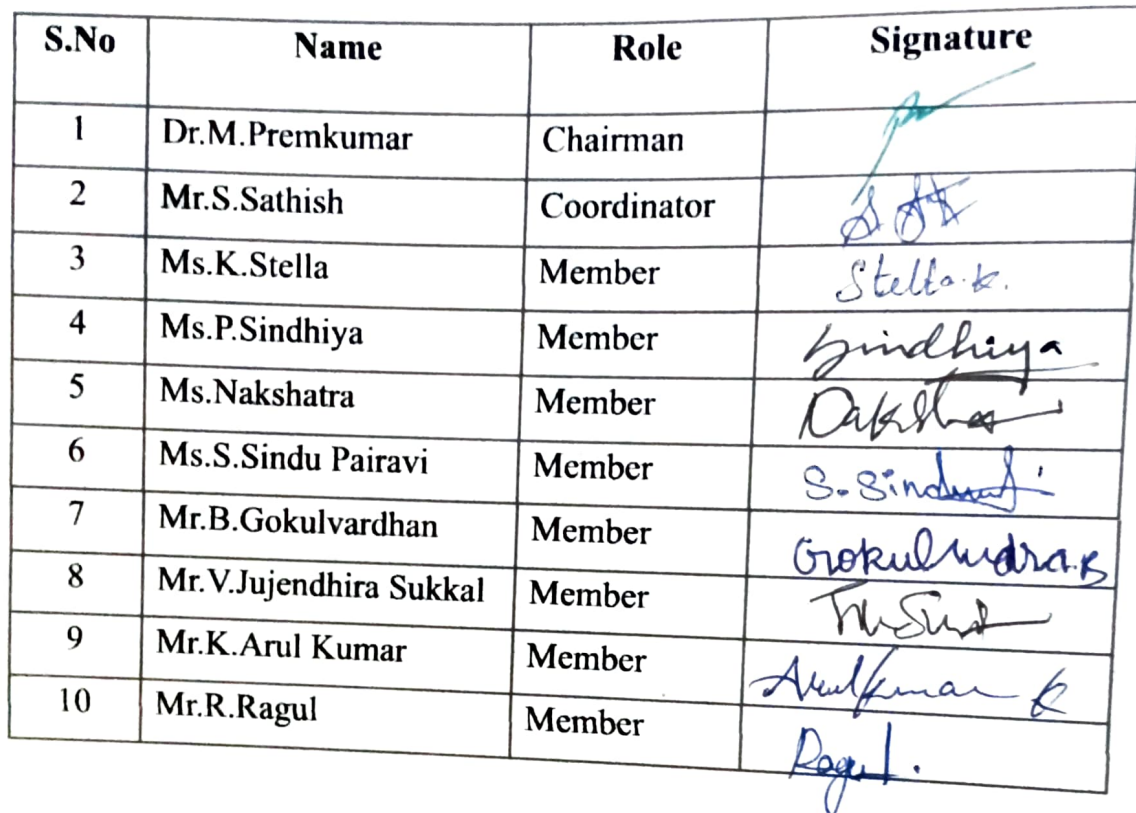 S.No Name Role Signature
1 Dr.M.Premkumar Chairman
2 Mr.S.Sathish Coordinator
3 Ms.K.Stella Member Stella.k.
4 Ms.P.Sindhiya Member Sindhiya
5 Ms.Nakshatra Member
6 Ms.S.Sindu Pairavi Member S.
7 Mr.B.Gokulvardhan Member
8 Mr.V.Jujendhira Sukkal Member
9 Mr.K.Arul Kumar Member Arulkumar K
10 Mr.R.Ragul Member Ragul.